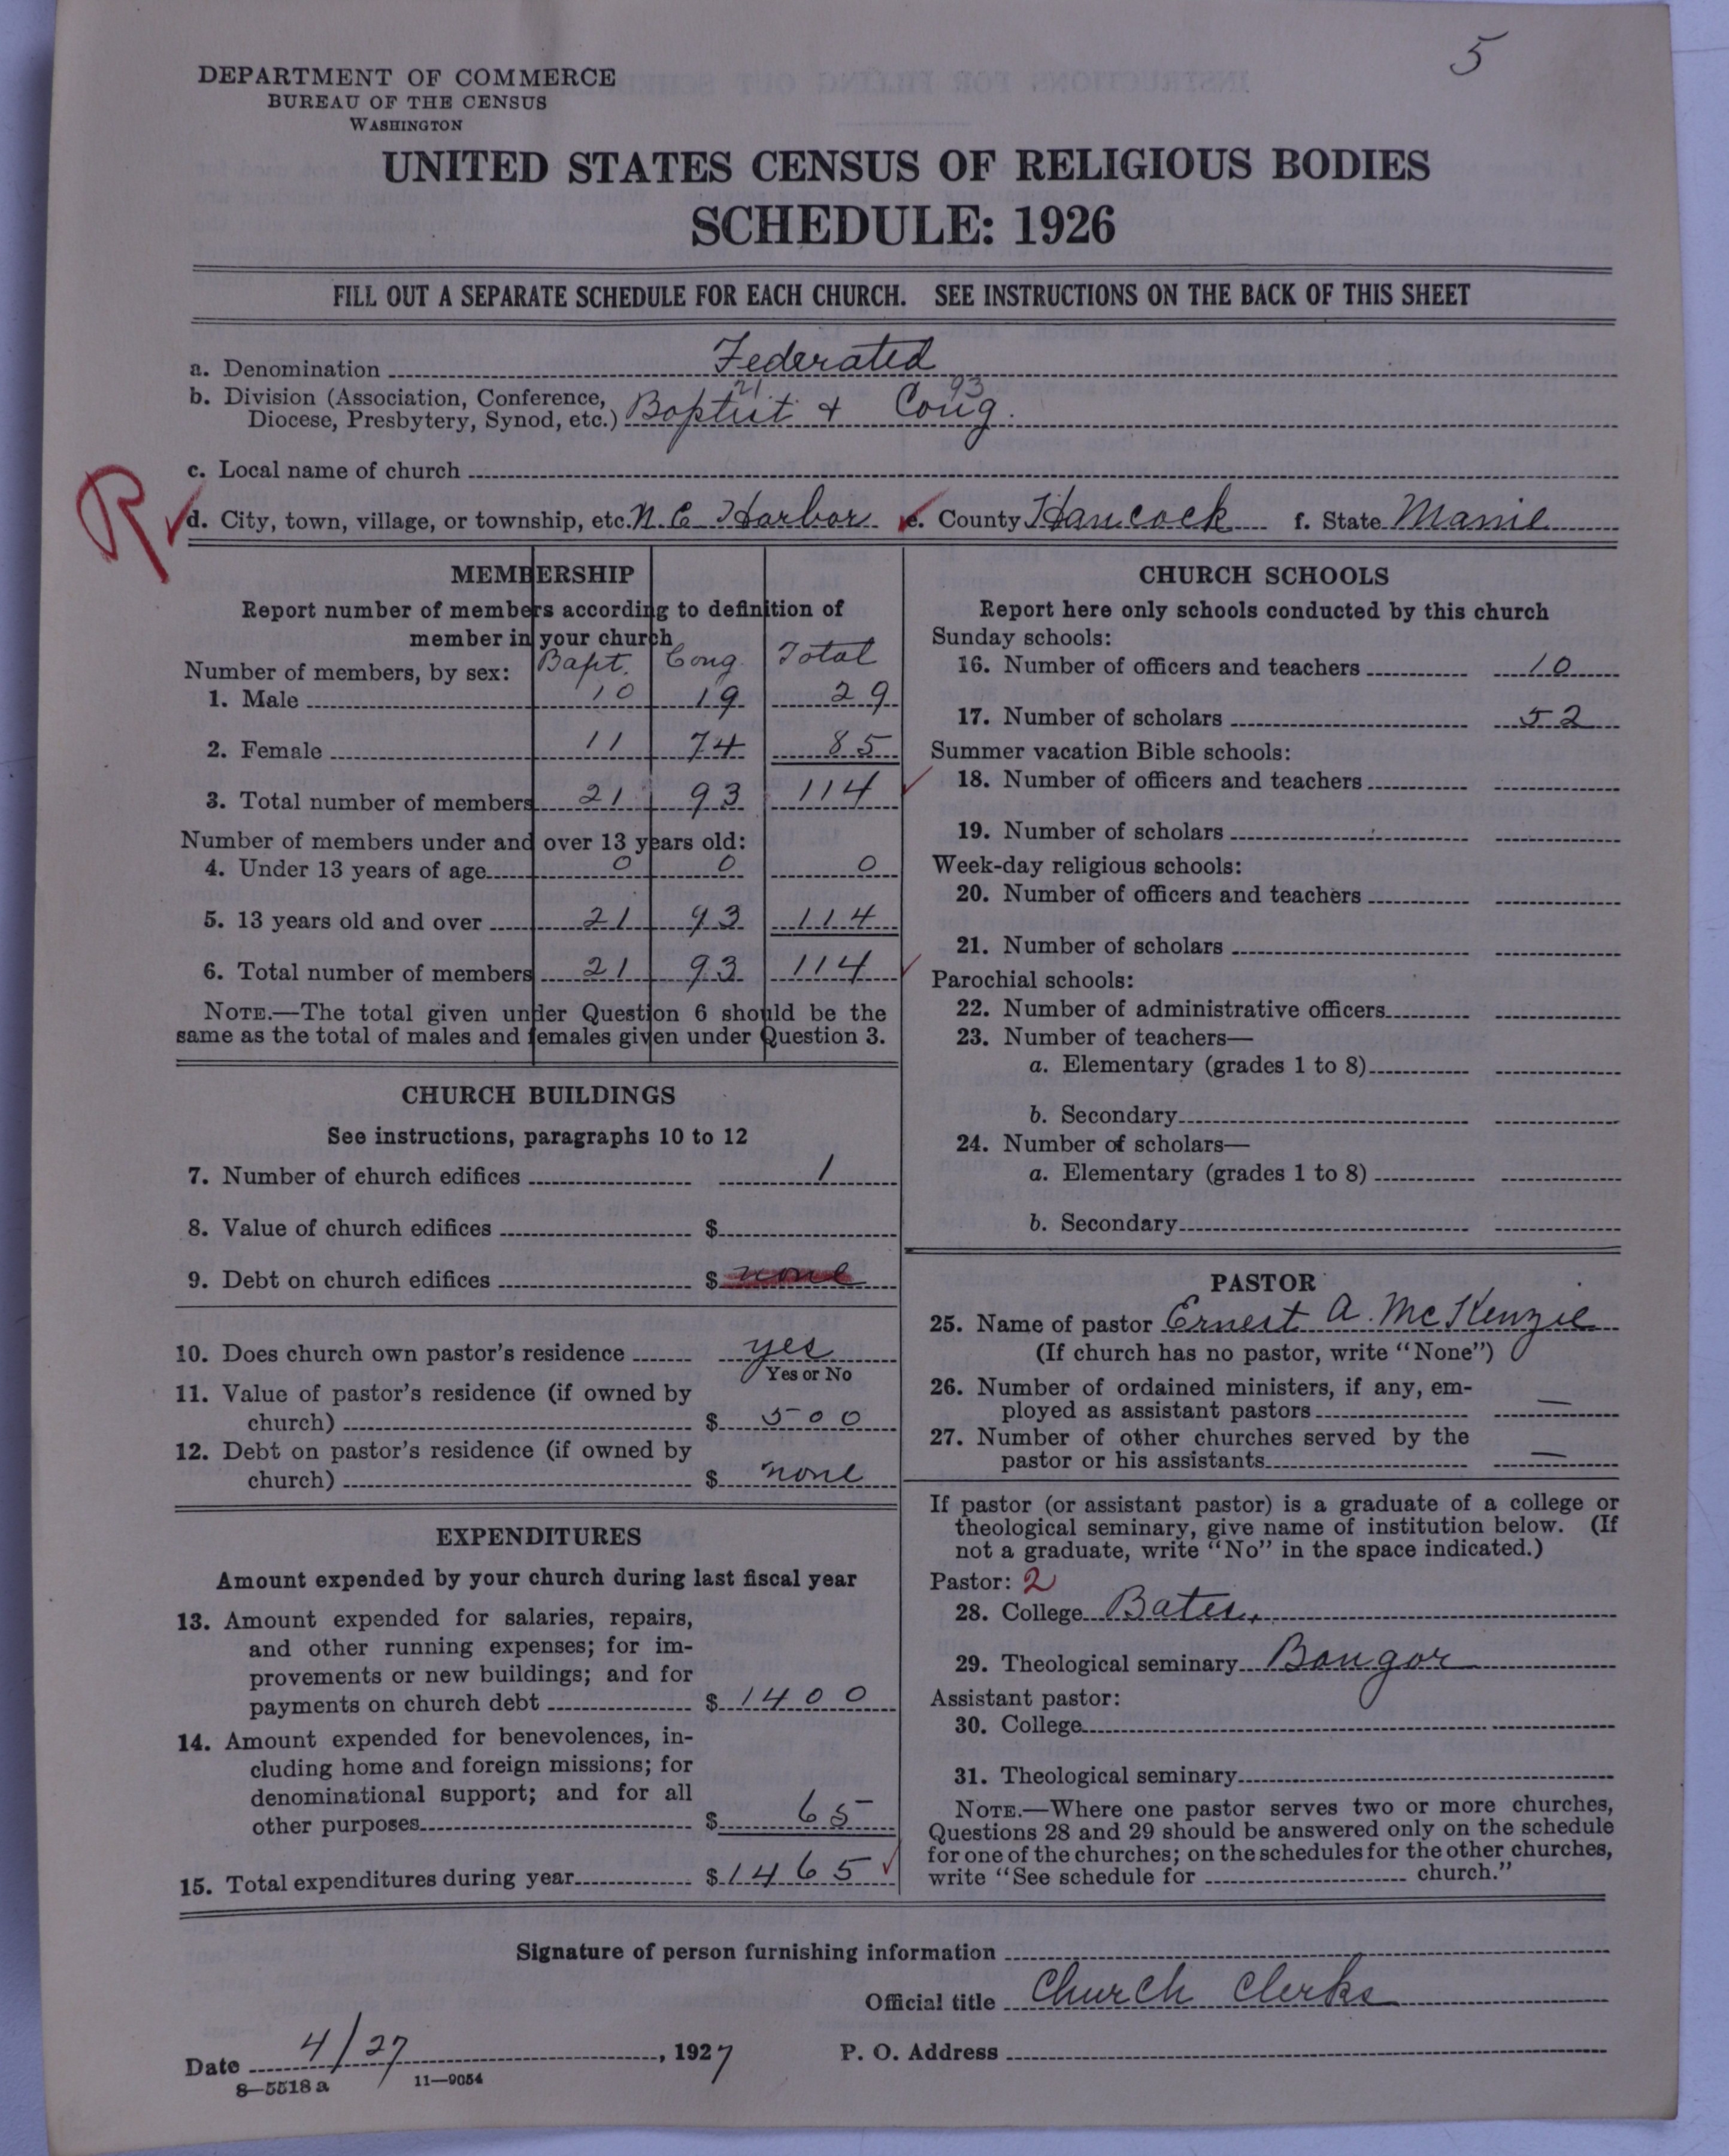 5
DEPARTMENT OF COMMERCE
BUREAU OF THE CENSUS
WASHINGTON
UNITED STATES CENSUS OF RELIGIOUS BODIES
SCHEDULE: 1926
FILL OUT A SEPARATE SCHEDULE FOR EACH CHURCH. SEE INSTRUCTIONS ON THE BACK OF THIS SHEET
a. Denomination Federated
21 93
b. Division (Association, Conference, Diocese, Presbytery, Synod, etc.) Baptist + Cong.
c. Local name of church
R
d. City, town, village, or township, etc. Harbor e. County Hancock f. State Maine
MEMBERSHIP
Report number of members according to definition of
member in your church
Number of members, by sex: Bapt. Cong. Total
1. Male 10 19 29
2. Female 11 74 85
3. Total number of members 21 93 114
Number of members under and over 13 years old:
4. Under 13 years of age 0 0 0
5. 13 years old and over 21 93 114
6. Total number of members 21 93 114
NOTE.—The total given under Question 6 should be the
same as the total of males and females given under Question 3.
CHURCH BUILDINGS
See instructions, paragraphs 10 to 12
7. Number of church edifices 1
8. Value of church edifices $
9. Debt on church edifices $ none
10. Does church own pastor's residence yes
Yes or No
11. Value of pastor's residence (if owned by
church) $ 500
12. Debt on pastor's residence (if owned by
church) $ none
EXPENDITURES
Amount expended by your church during last fiscal year
13. Amount expended for salaries, repairs,
and other running expenses; for im-
provements or new buildings; and for
payments on church debt $ 1400
14. Amount expended for benevolences, in-
cluding home and foreign missions; for
denominational support; and for all
other purposes $ 65
15. Total expenditures during year $ 1465
CHURCH SCHOOLS
Report here only schools conducted by this church
Sunday schools:
16. Number of officers and teachers 10
17. Number of scholars 52
Summer vacation Bible schools:
18. Number of officers and teachers
19. Number of scholars
Week-day religious schools:
20. Number of officers and teachers
21. Number of scholars
Parochial schools:
22. Number of administrative officers
23. Number of teachers—
a. Elementary (grades 1 to 8)
b. Secondary
24. Number of scholars—
a. Elementary (grades 1 to 8)
b. Secondary
PASTOR
25. Name of pastor Ernest A. McKenzie
(If church has no pastor, write "None")
26. Number of ordained ministers, if any, em-
ployed as assistant pastors —
27. Number of other churches served by the
pastor or his assistants —
If pastor (or assistant pastor) is a graduate of a college or
theological seminary, give name of institution below. (If
not a graduate, write "No" in the space indicated.)
Pastor: 2
28. College Bates,
29. Theological seminary Bangor
Assistant pastor:
30. College
31. Theological seminary
NOTE.—Where one pastor serves two or more churches,
Questions 28 and 29 should be answered only on the schedule
for one of the churches; on the schedules for the other churches,
write "See schedule for church."
Signature of person furnishing information
Official title Church Clerks
Date 4/27, 1927 P. O. Address
8—5518 a 11—9054